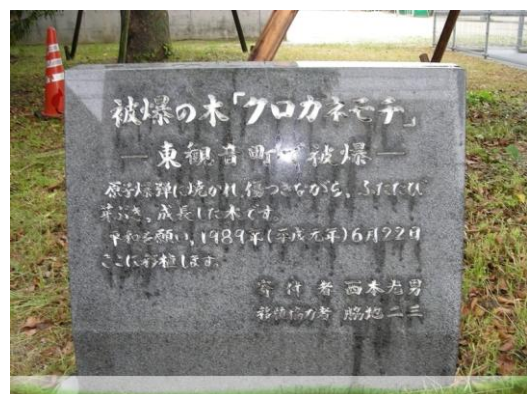 被爆の木「クロカネモチ」
―東観音町で被爆―
原子爆弾に焼かれ、傷つきながら、ふたたび
芽ぶき、成長した木です。
平和を願い、1989年(平成元年)6月22日
ここに移植します。
寄付者 西本光男
移植協力者 脇地二三